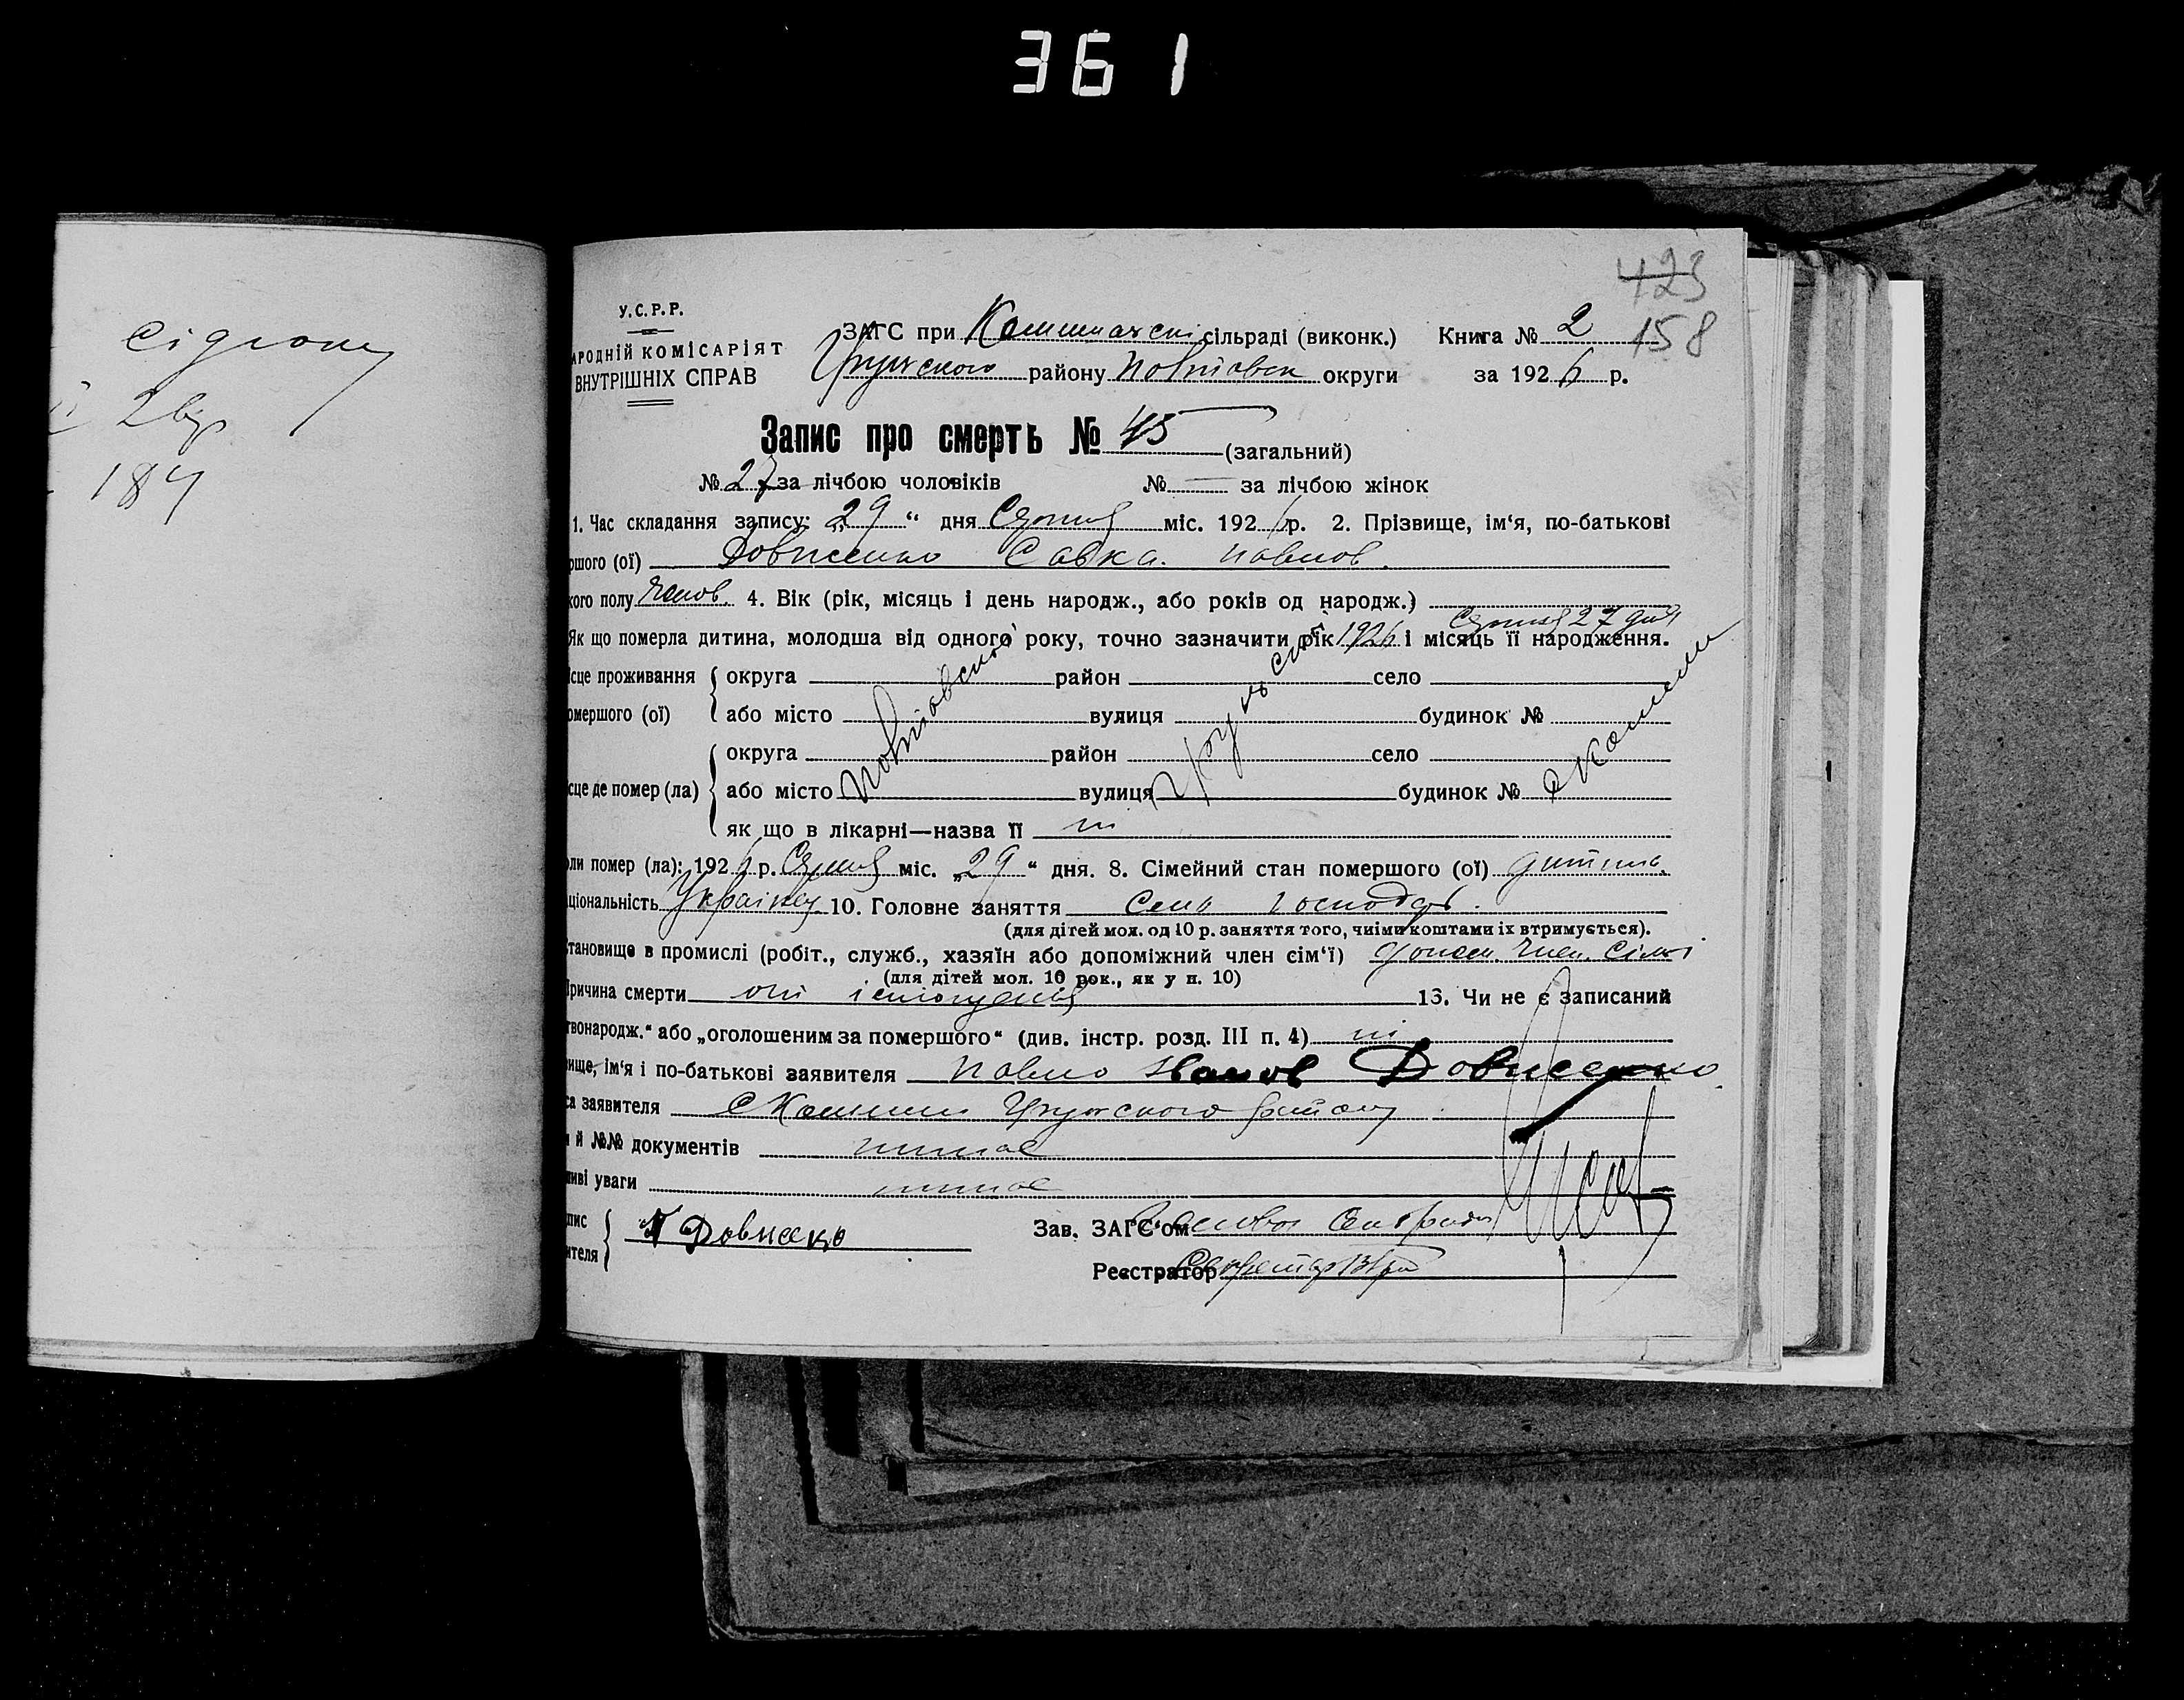 361
сідному
2 вр
184
423
158
У.С.Р.Р.
АРОДНІЙ КОМІСАРІЯТ
ВНУТРІШНІХ СПРАВ
ЗАГС при сільраді (виконк.) Книга № 2
району Полтавск округи за 1926 р.
Запис про смерть № 45 (загальний)
№ 27 за лічбою чоловіків № — за лічбою жінок
1. Час складання запису: „29“ дня Серпня міс. 1926 р. 2. Прізвище, ім‘я, по-батькові
ршого (ої) Довженко Савка. Павлов.
кого полу Чолов. 4. Вік (рік, місяць і день народж., або років од народж.)
Серпня 27 дня
Як що померла дитина, молодша від одного року, точно зазначити рік 1926 і місяць її народження.
ісце проживання округа район село
омершого (ої) або місто вулиця будинок №
округа район село
Полтавської с
ісце де помер (ла) або місто вулиця будинок №
як що в лікарні—назва її ні
оли помер (ла): 1926 р. Серпня міс. „29“ дня. 8. Сімейний стан помершого (ої) дитина.
ціональність Українец 10. Головне заняття Сель господар.
(для дітей мол. од 10 р. заняття того, чиїми коштами їх втримується).
тановище в промислі (робіт., служб., хазяїн або допоміжний член сім‘ї) допом. член. сімї
(для дітей мол. 10 рок., як у п. 10)
Причина смерти от 13. Чи не є записаний
твонародж.“ або „оголошеним за помершого“ (див. інстр. розд. III п. 4) ні
ище, ім‘я і по-батькові заявителя Павло Иванов Довженко
са заявителя с района
и й №№ документів немає
ливі уваги немає
пис П Довженко Зав. ЗАГС‘ом Голова Сельради
ителя
Реєстратор Секретар